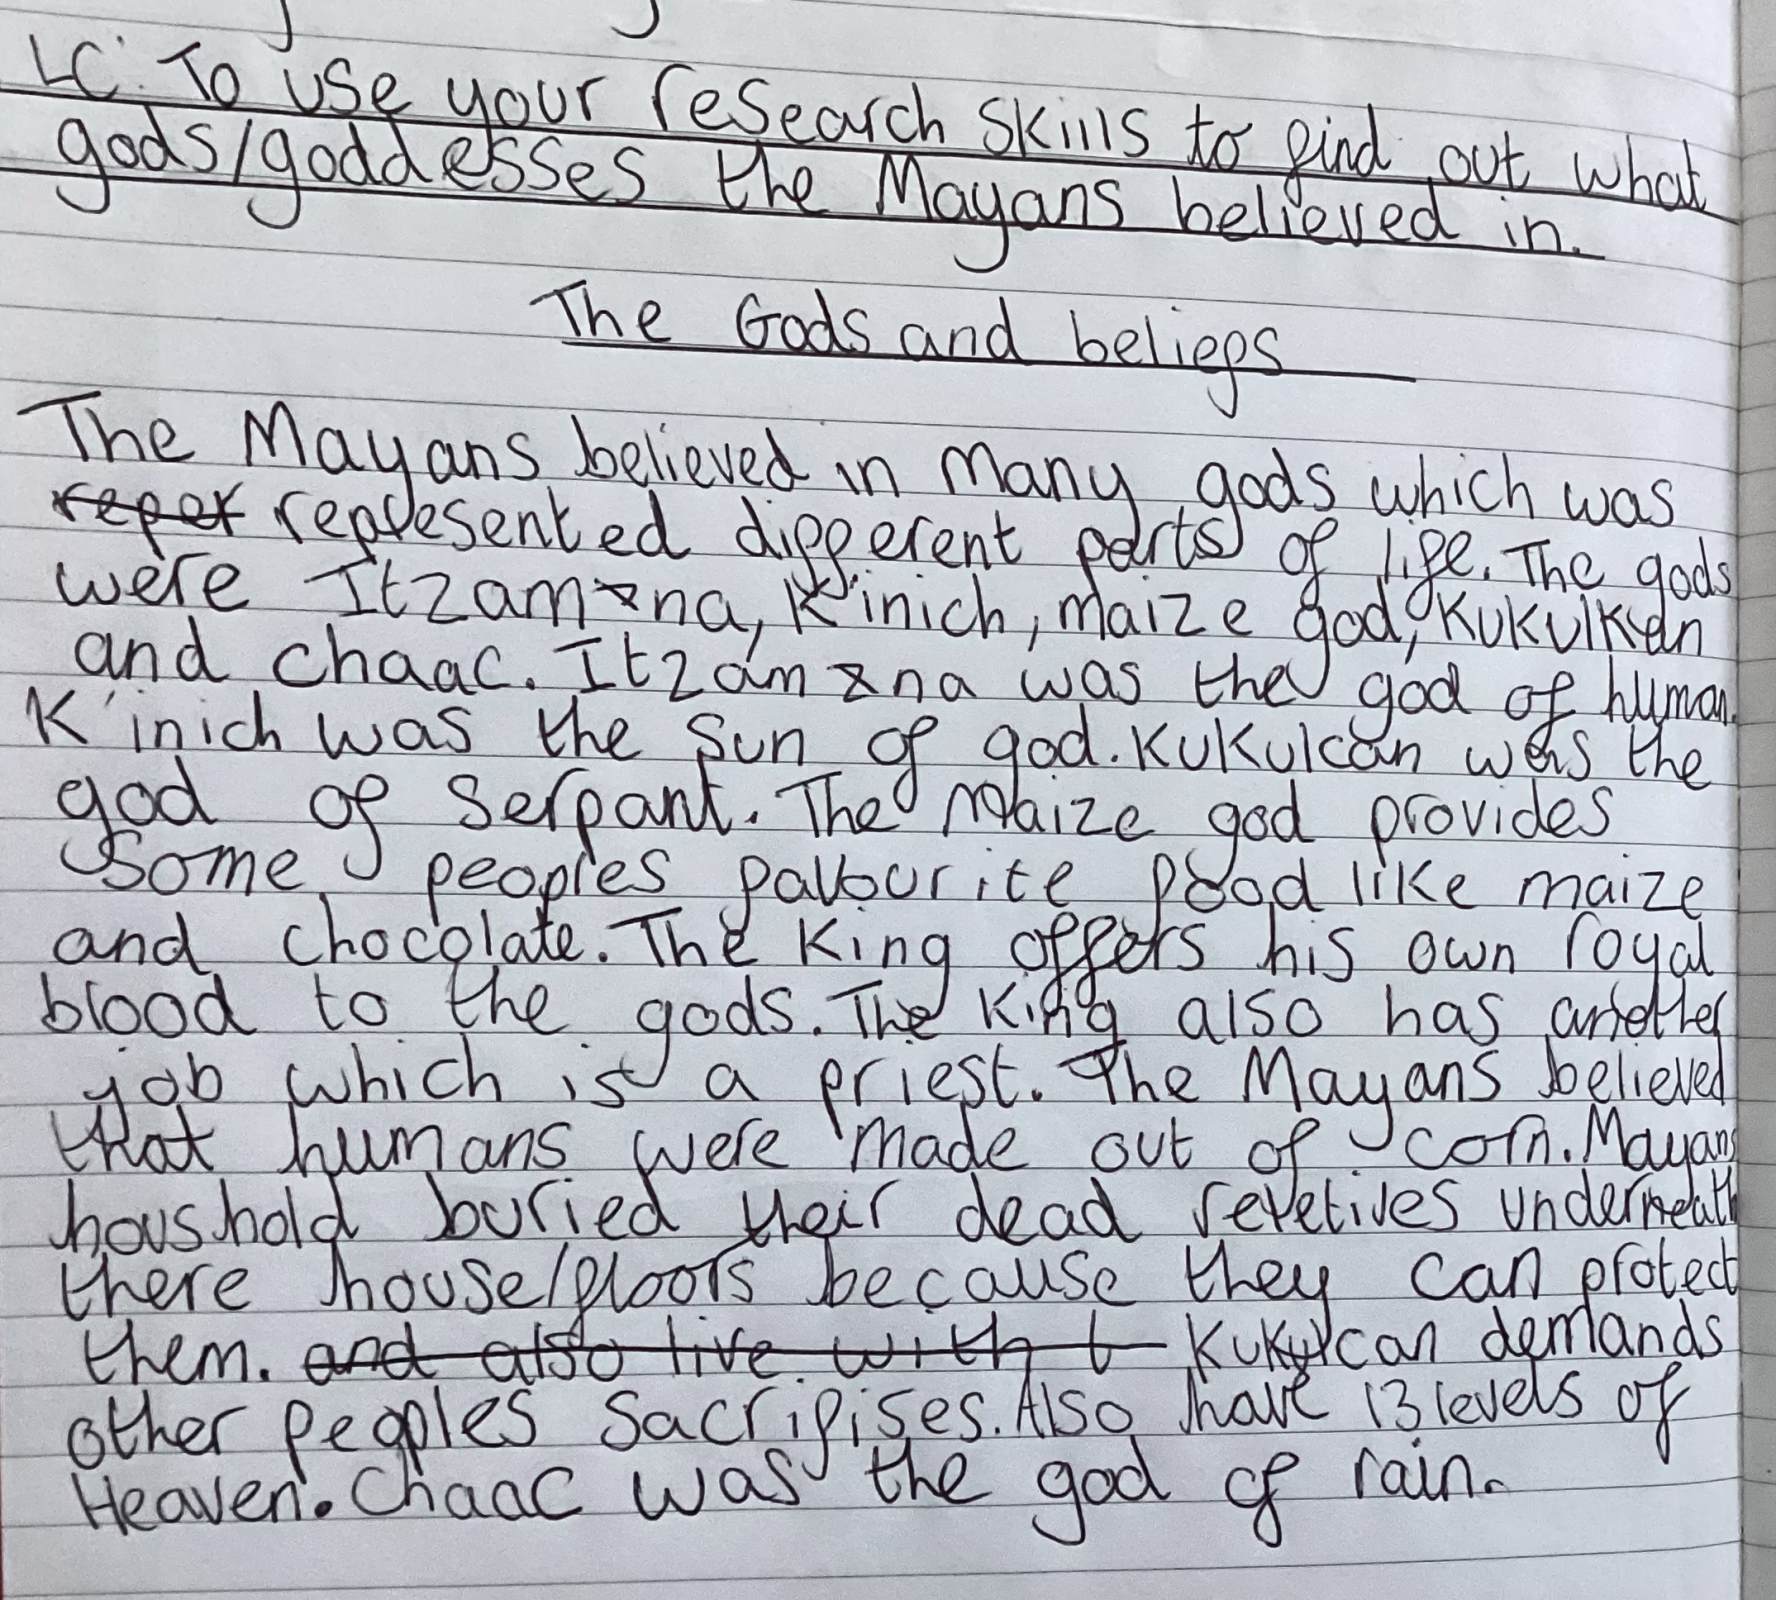 LC: To use your research skills to find out what
gods/goddesses the Mayans believed in.
The Gods and beliefs
The Mayans believed in many gods which was
reper represented different parts of life. The gods
were Itzamna, K'inich, maize god, Kukulkan
and chaac. Itzamna was the god of human.
K'inich was the sun of god. Kukulcan was the
god of serpant. The Maize god provides
some peoples favourite food like maize
and chocolate. The King offers his own royal
blood to the gods. The King also has another
job which is a priest. The Mayans believed
that humans were made out of corn. Mayans
houshold buried their dead reletives underneath
there house/floors because they can protect
them. and also live with t Kukulcan demands
other peoples sacrifises. Also have 13 levels of
Heaven. Chaac was the god of rain.